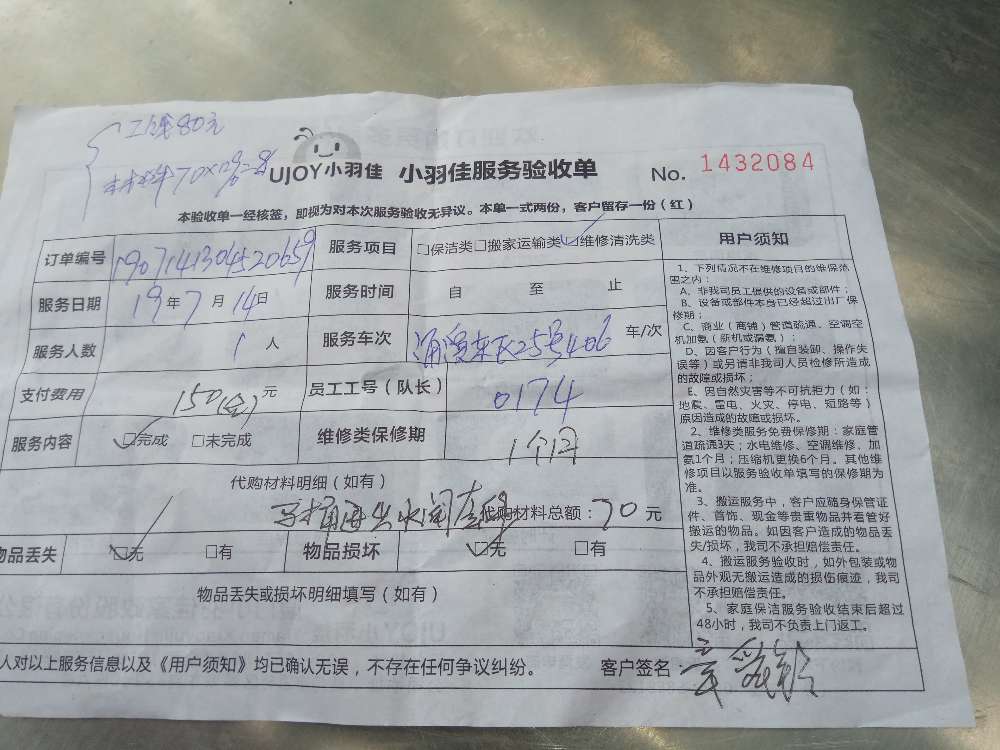 工钱80元
材料70
UJOY小羽佳 小羽佳服务验收单 No. 1432084
本验收单一经核签，即视为对本次服务验收无异议。本单一式两份，客户留存一份（红）
订单编号 1907141304520659 服务项目 □保洁类□搬家运输类☑维修清洗类
服务日期 19年7月14日 服务时间 自 至 止
服务人数 1人 服务车次 25号406 车/次
支付费用 150 元 员工工号（队长） 0174
服务内容 ☑完成 □未完成 维修类保修期 1个月
代购材料明细（如有）
马桶 水阀 代购材料总额：70元
物品丢失 ☑无 □有 物品损坏 ☑无 □有
物品丢失或损坏明细填写（如有）
人对以上服务信息以及《用户须知》均已确认无误，不存在任何争议纠纷。 客户签名：
用户须知
1、下列情况不在维修项目的维保范
围之内：
A、非我司员工提供的设备或部件；
B、设备或部件本身已经超过出厂保
修期；
C、商业（商铺）管道疏通、空调空
机加氨（新机或漏氨）；
D、因客户行为（擅自装卸、操作失
误等）或另请非我司人员检修所造成
的故障或损坏；
E、因自然灾害等不可抗拒力（如：
地震、雷电、火灾、停电、短路等）
原因造成的故障或损坏。
2、维修类服务免费保修期：家庭管
道疏通3天；水电维修、空调维修、加
氨1个月；压缩机更换6个月。其他维
修项目以服务验收单填写的保修期为
准。
3、搬运服务中，客户应随身保管证
件、首饰、现金等贵重物品并看管好
搬运的物品。如因客户造成的物品丢
失/损坏，我司不承担赔偿责任。
4、搬运服务验收时，如外包装或物
品外观无搬运造成的损伤痕迹，我司
不承担赔偿责任。
5、家庭保洁服务验收结束后超过
48小时，我司不负责上门返工。